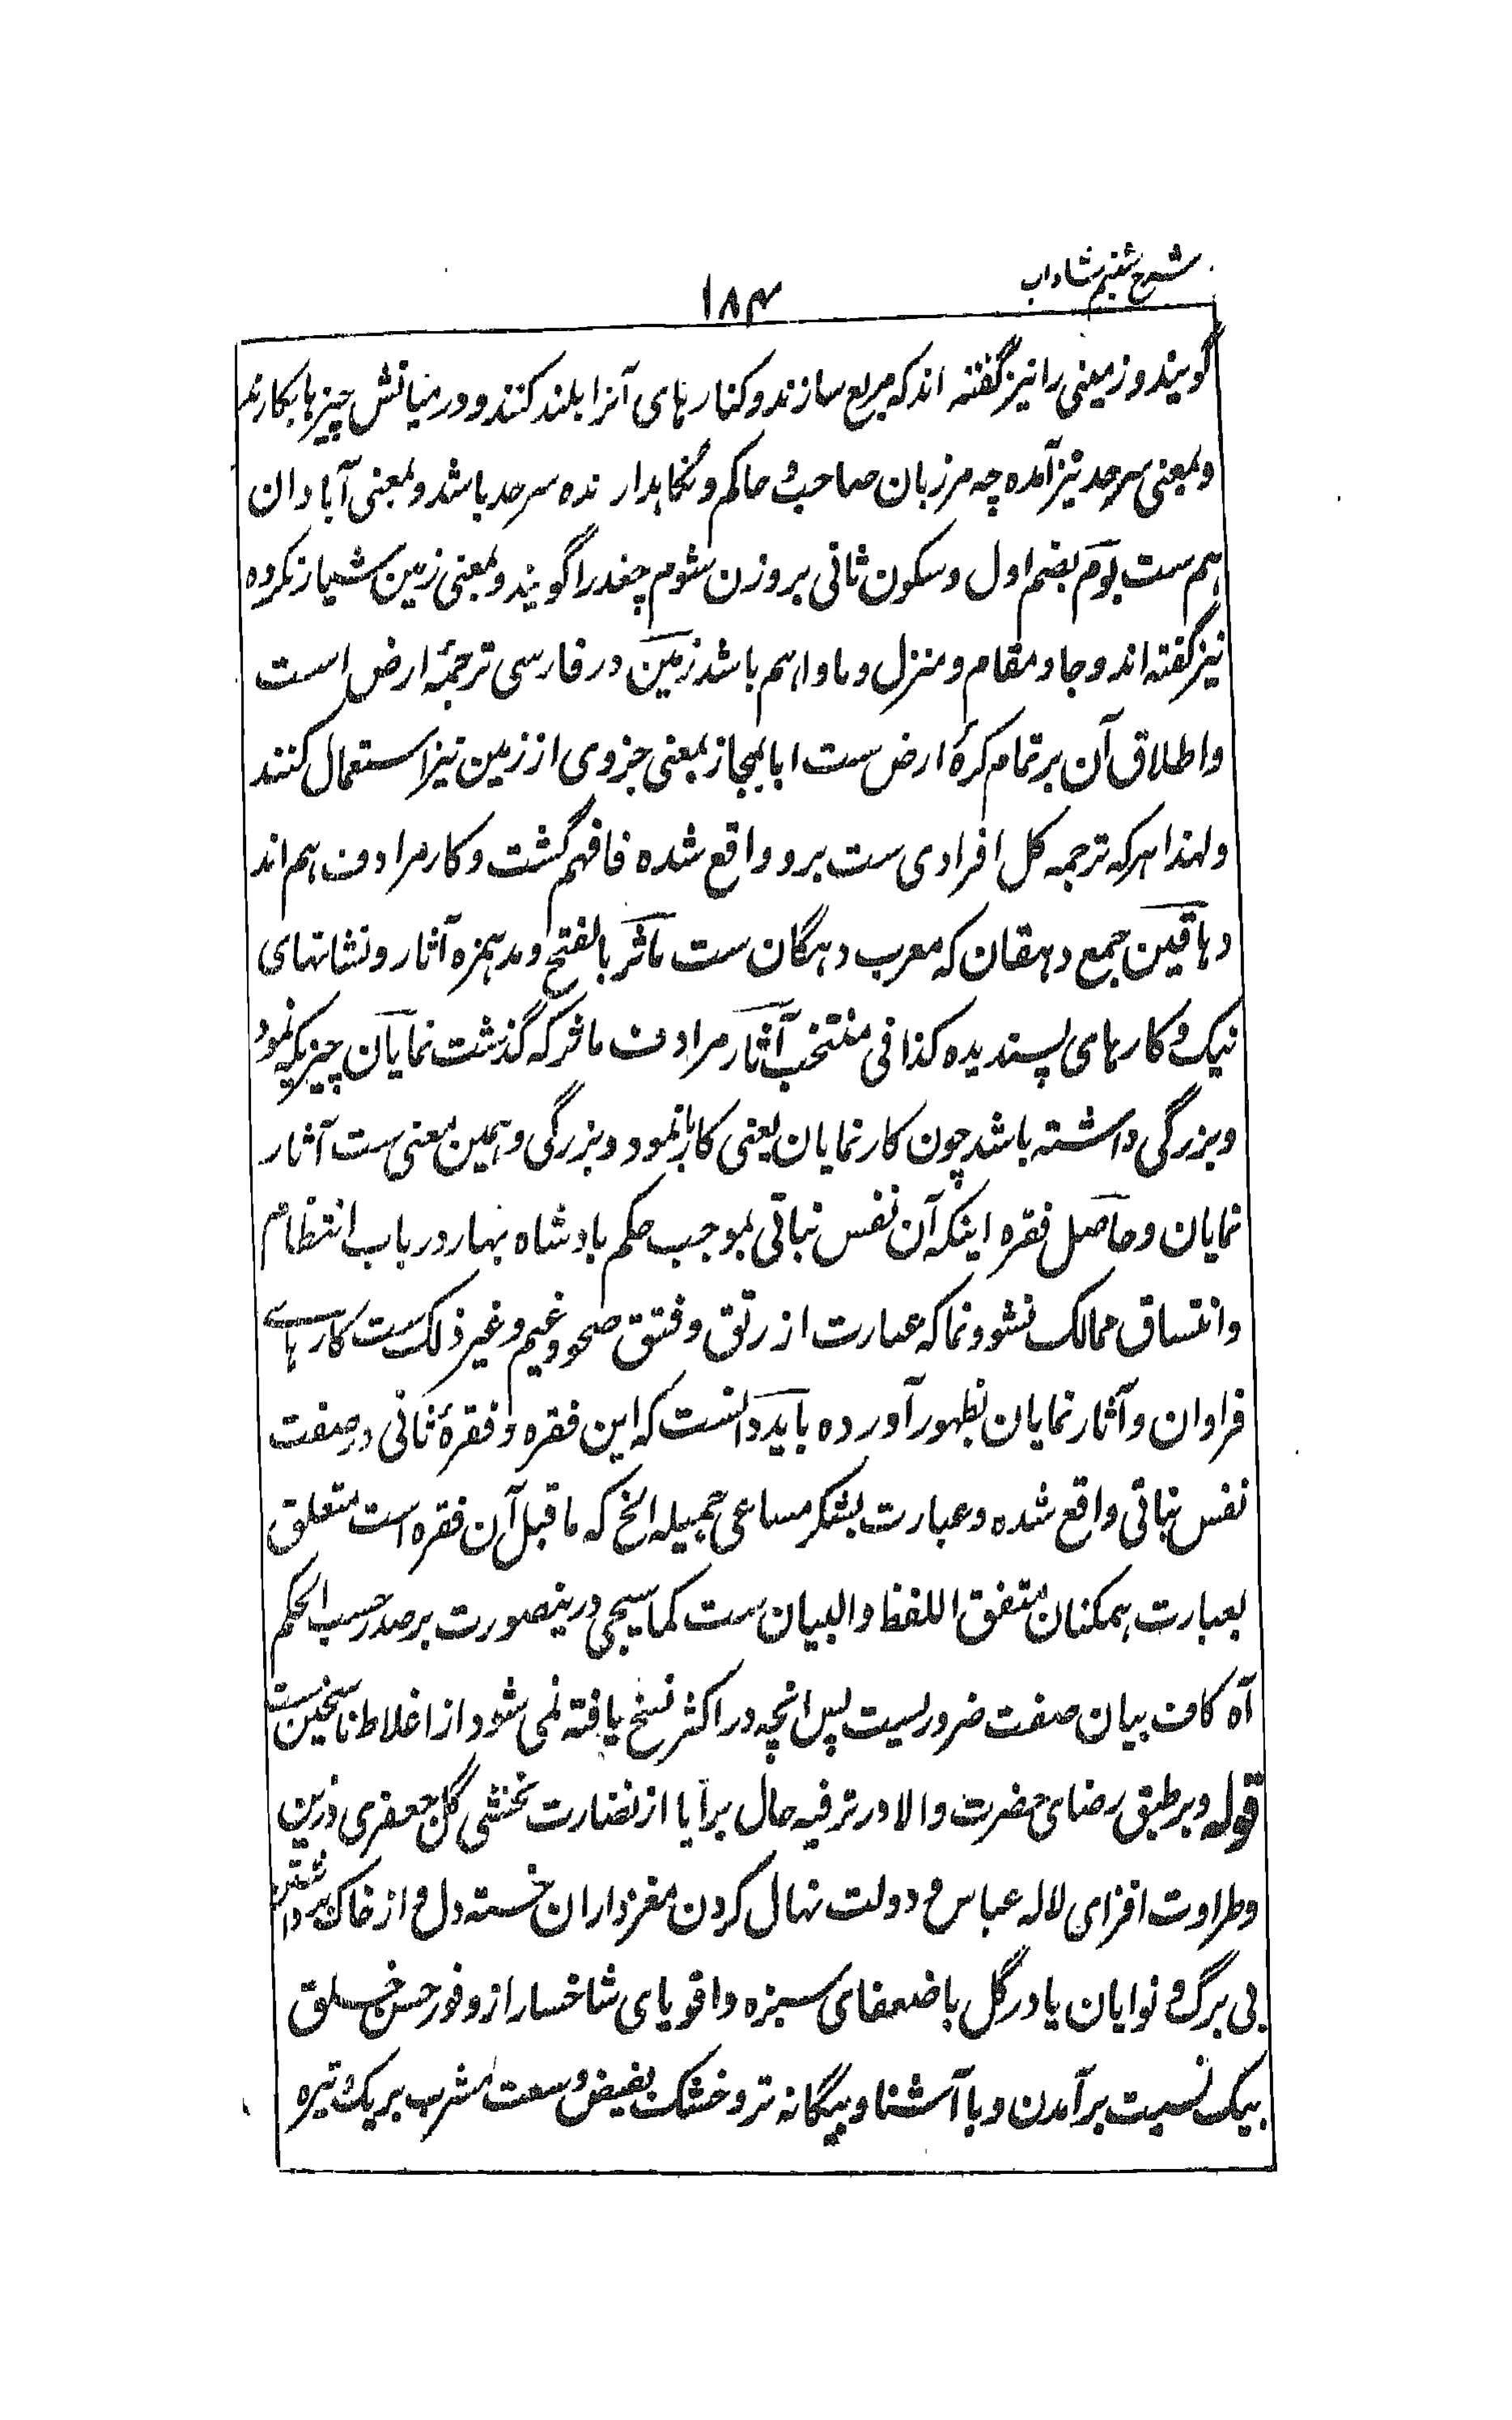 شرح شبنم شاداب
۱۸۴
گویند و زمینی را نیز گفته اند که مربع سازند و کنارهای آنرا بلند کنند و در میانش چیزها بکارند
و بمعنی سرحد نیز آمده چه مرزبان صاحب و حاکم و نگاہدارنده سرحد باشد و بمعنی آبادان
ہم ست بوم بضم اول و سکون ثانی بروزن شوم چغد را گویند و بمعنی زمین شیار نکرده
نیز گفته اند و جا و مقام و منزل و ماوا ہم باشد زمین در فارسی ترجمۂ ارض است
و اطلاق آن بر تمام کرۂ ارض ست اما بالمجاز بمعنی جزوی از زمین نیز استعمال کنند
و لہذا ہر که ترجمه کل افرادی ست برو واقع شده فافہم گشت و کار مرادف ہم اند
دہاقین جمع دہقان که معرب دہگان ست مآثر بالفتح و مد ہمزه آثار و نشانہای
نیک و کارہای پسندیده کذا فی منتخب آثار مرادف ماثر که گذشت نمایان چیزیکه نمود
و بزرگی داشته باشد چون کار نمایان یعنی کار بانمود و بزرگی و ہمین معنی ست آثار
نمایان و حاصل فقره اینکه آن نفس نباتی بموجب حکم بادشاه بہار در باب انتظام
و اتساق ممالک نشو و نما که عبارت از رتق و فتق صحو و غیم و غیر ذلک ست کارہاے
فراوان و آثار نمایان بظہور آورده باید دانست که این فقره و فقرۂ ثانی در صفت
نفس نباتی واقع شده و عبارت بشکر مساعی جمیله الخ که ما قبل آن فقره است متعلق
بعبارت ہمکنان متفق اللفظ و البیان ست کما سیجی درینصورت بر صدر حسب الحکم
آه کاف بیان صفت ضروریست پس انچه در اکثر نسخ یافته نمی شود از اغلاط ناسخین ست
قوله و بر طبق رضای حضرت والا در ترفیه حال برایا از نضارت بخشی گل جعفری و زرین
و طراوت افزای لاله عباس و دولت نہال کردن مغزداران خسته دل و از خاک برداشتن
بی برگ و نوایان پا در گل با ضعفای سبزه و اقویای شاخسار از وفور حسن خلق
بیک نسبت برآمدن و با آشنا و بیگانه تر و خشک بفیض وسعت مشرب بریک وتیره